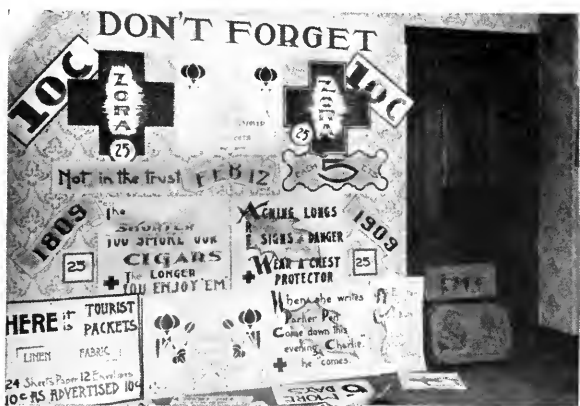 DON'T FORGET
10¢
ZORA
25
ZORA
25
10¢
Not in the trust
FEB 12
EACH 5 CTS
1809
The
SHORTER
YOU SMOKE OUR
CIGARS
The LONGER
YOU ENJOY 'EM
25
ACHING LUNGS
ARE
SIGNS of DANGER
WEAR A CHEST
PROTECTOR
1909
25
HERE it is TOURIST
PACKETS
LINEN FABRIC
24 Sheets Paper 12 Envelopes
10¢ AS ADVERTISED 10¢
When she writes
Parker Pen
Come down this
evening, Charlie.
he comes.
MORE
DAYS